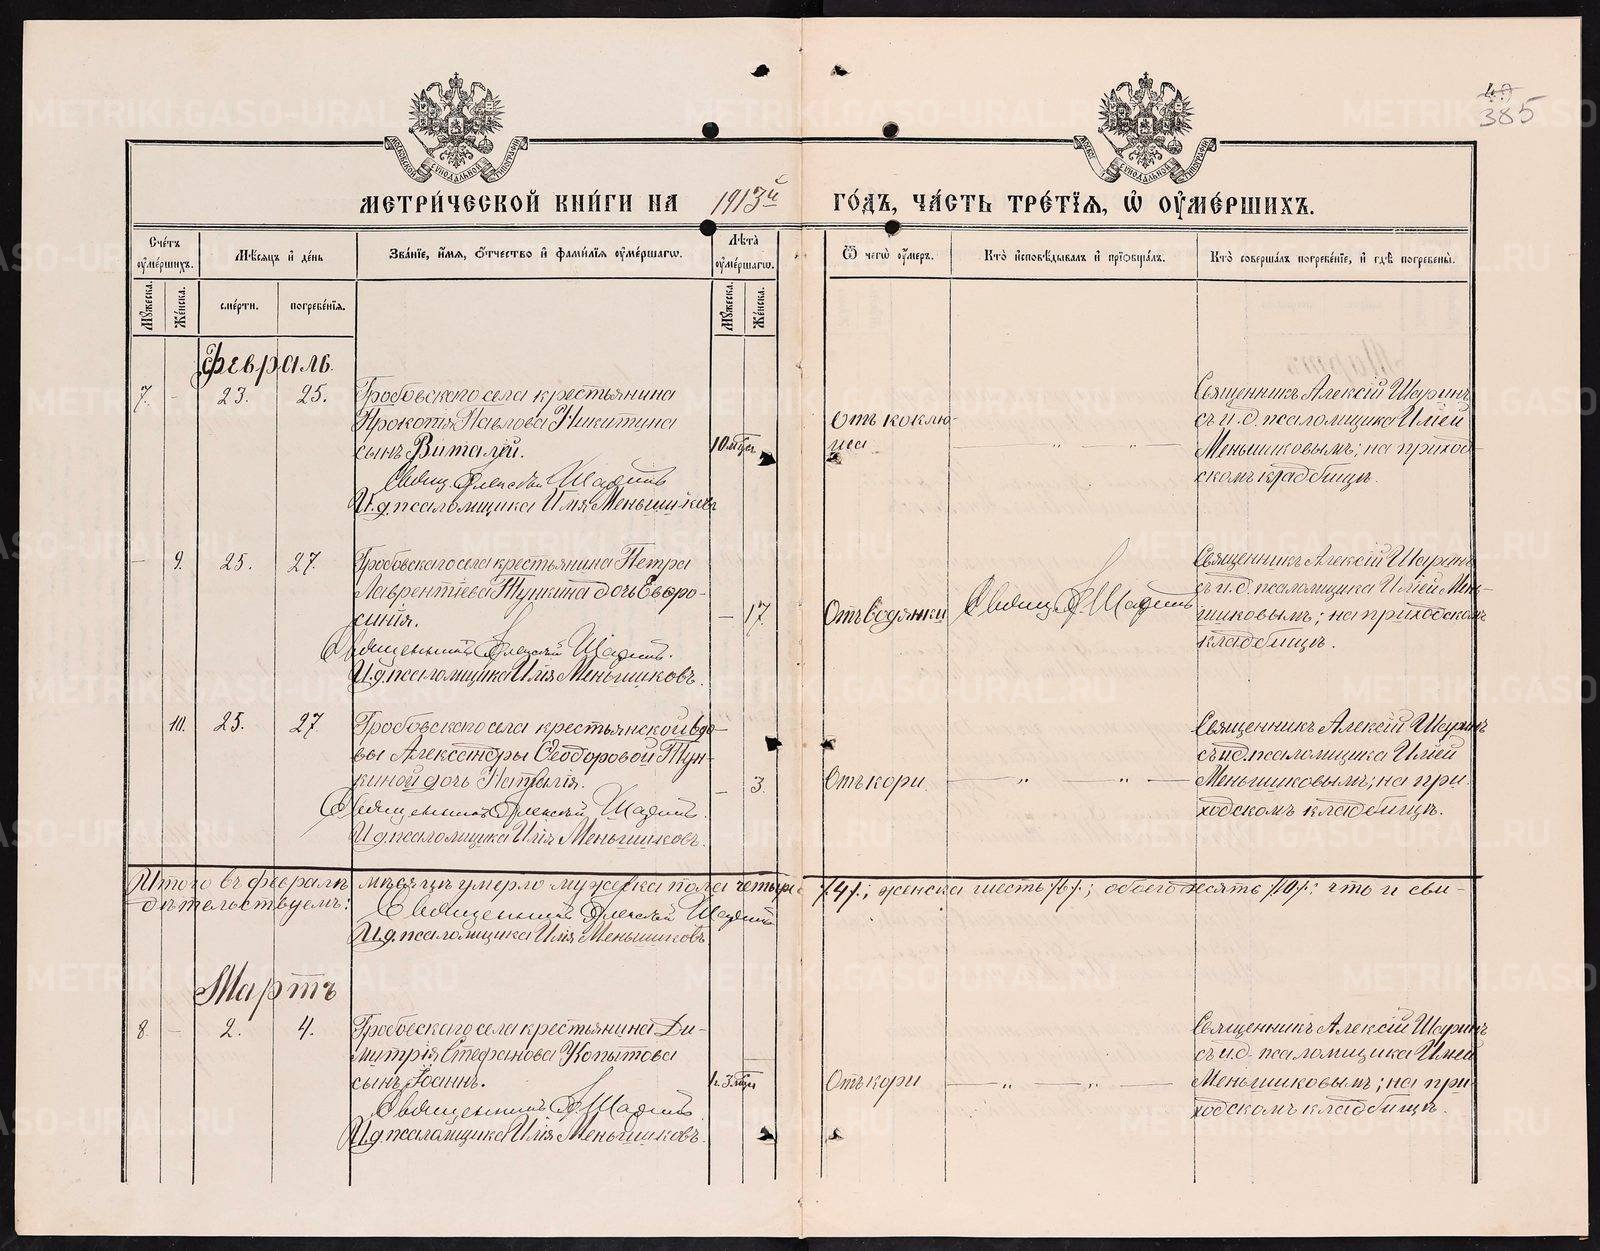 49
385
МОСКОВСКОЙ СѴНОДАЛЬНОЙ ТИПОГРАФІИ
МЕТРИ́ЧЕСКОЙ КНИ́ГИ НА 1913й ГО́ДЪ, ЧА́СТЬ ТРЕ́ТІЯ, Ѽ ОУ҆МЕ́РШИХЪ.
Сче́тъ оу҆ме́ршихъ.
Мѣ́сяцъ и҆ де́нь
Зва́ніе, и҆́мя, ѻ҆́тчество и҆ фами́лія оу҆ме́ршагѡ.
Лѣ́та оу҆ме́ршагѡ.
Ѿ чегѡ̀ оу҆́меръ.
Кто̀ и҆сповѣ́дывалъ и҆ прїѻбща́лъ.
Кто̀ соверша́лъ погребе́ніе, и҆ гдѣ̀ погребены̀.
Му́жеска.
Же́нска.
сме́рти.
погребе́нія.
Му́жеска.
Же́нска.
Февраль.
7. - 23. 25.
Гробовскаго села крестьянина
Прокопія Павлова Никитина
сынъ Виталій.
Свящ. Алексѣй Шаринъ
И.д. псаломщика Илія Меньшиковъ
10 мѣся
Отъ коклю-
ша
— „ — „ —
Священникъ Алексій Шаринъ
съ и. д. псаломщика Иліей
Меньшиковымъ; на приход-
скомъ кладбищѣ.
- 9. 25. 27.
Гробовскаго села крестьянина Петра
Лаврентіева Тункина дочь Евфро-
синія.
Священникъ Алексѣй Шаринъ.
И.д. псаломщика Илія Меньшиковъ.
— 17.
Отъ водянки
Свящ. А. Шаринъ
Священникъ Алексій Шаринъ
съ и. д. псаломщика Иліей Мень-
шиковымъ; на приходскомъ
кладбищѣ.
10. 25. 27
Гробовскаго села крестьянской вдо-
вы Александры Ѳеодоровой Тун-
киной дочь Наталія.
Священникъ Алексѣй Шаринъ.
И.д. псаломщика Илія Меньшиковъ.
— 3.
Отъ кори.
— „ „ —
Священникъ Алексій Шаринъ
съ и.д. псаломщика Иліей
Меньшиковымъ; на при-
ходскомъ кладбищѣ.
Итого въ февралѣ мѣсяцѣ умерло мужеска пола четыре /4/.; женска шесть /6/.; обоего десять /10/.: что и сви-
дѣтельствуемъ: Священникъ Алексѣй Шаринъ
И.д. псаломщика Илія Меньшиковъ
Мартъ
8 - 2. 4.
Гробовскаго села крестьянина Ди-
митрія Стефанова Копытова
сынъ Іоаннъ.
Священникъ А. Шаринъ
И.д. псаломщика Илія Меньшиковъ.
1 г. 3 мѣся
Отъ кори
— „ — „ —
Священникъ Алексій Шаринъ
съ и.д. псаломщика Иліей
Меньшиковымъ; на при-
ходскомъ кладбищѣ.
METRIKI.GASO-URAL.RU